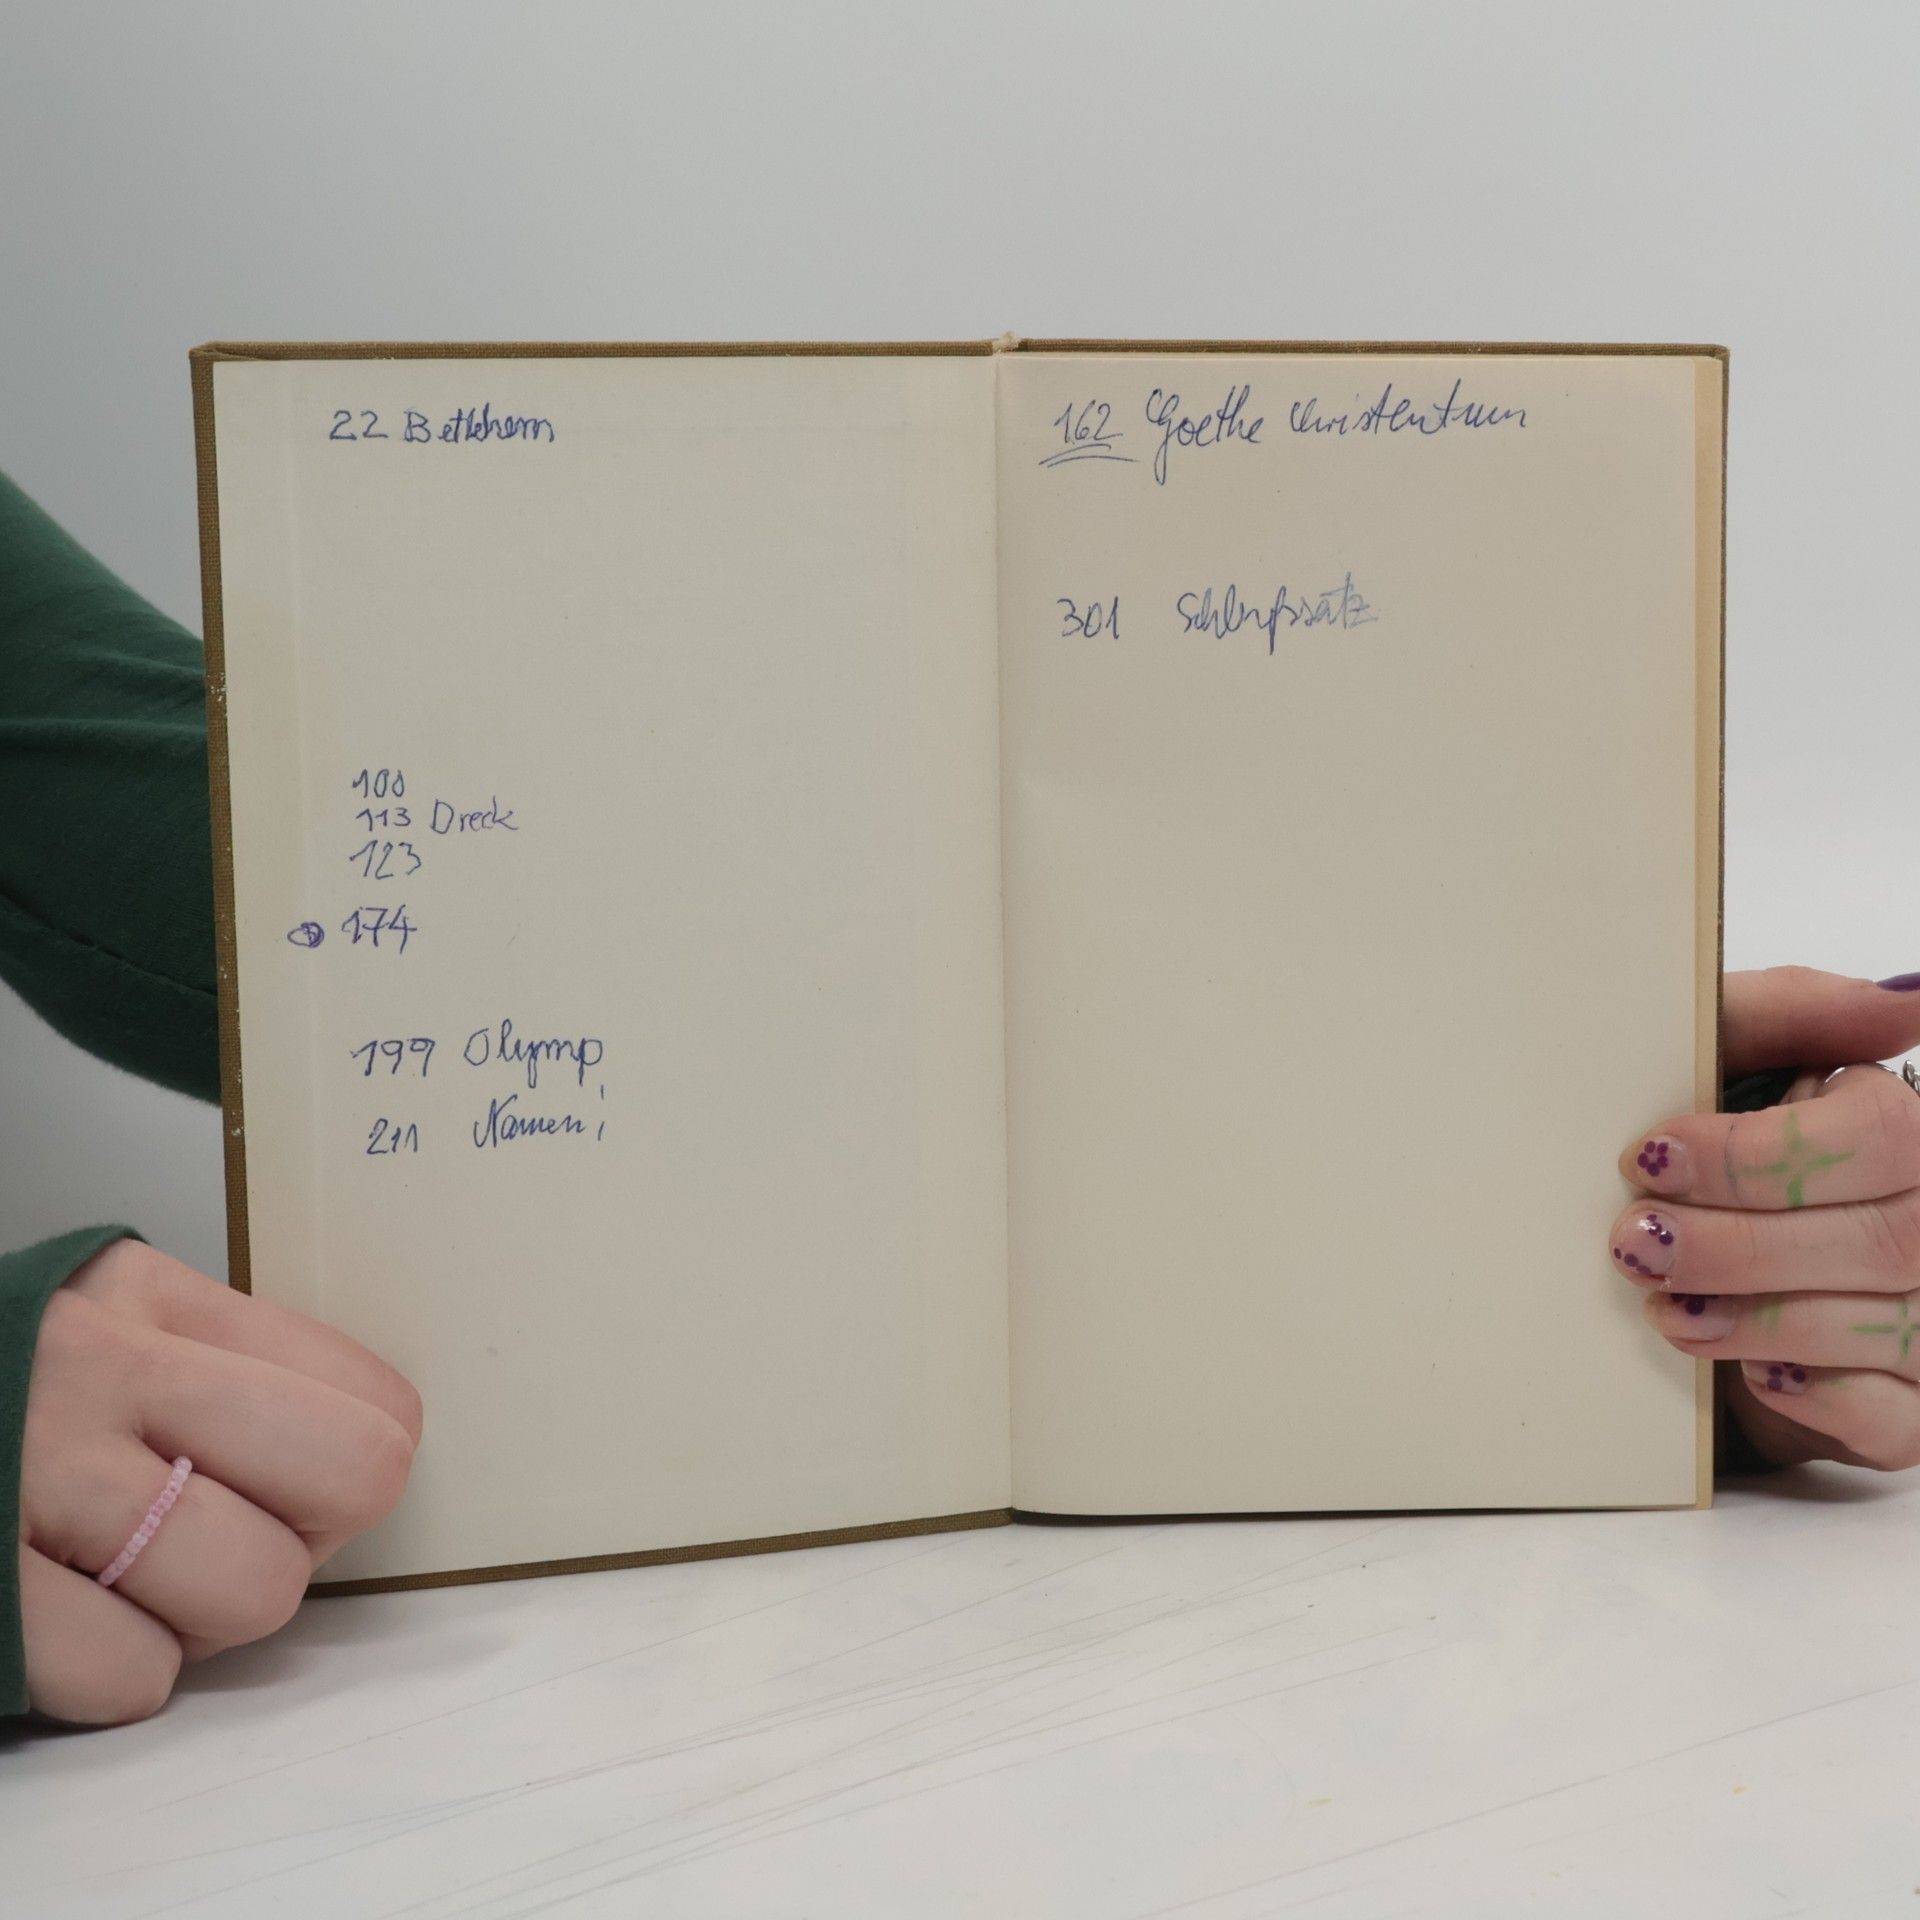 22 Bethlehem
100
113 Dreck
123
174
199 Olymp
211 Namen!
162 Goethe Christentum
301 Schlußsatz